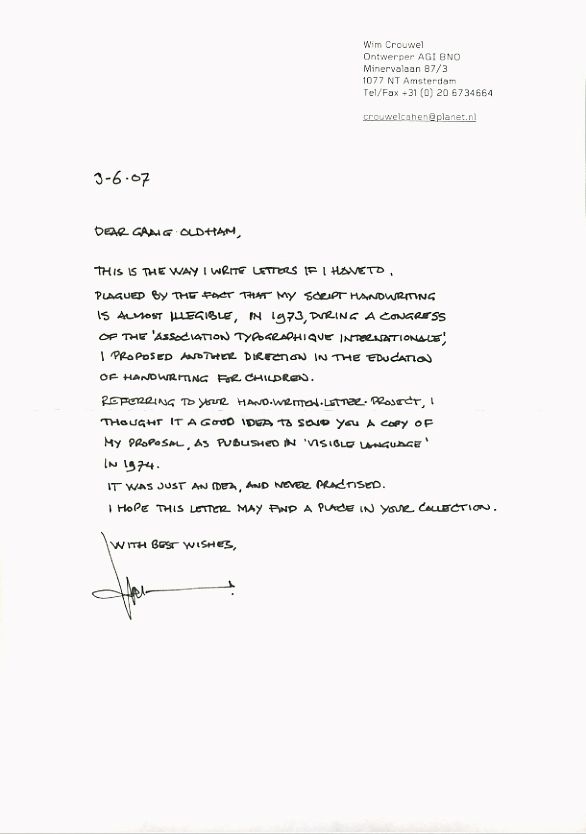 Wim Crouwel
Ontwerper AGI BNO
Minervalaan 87/3
1077 NT Amsterdam
Tel/Fax +31 (0) 20 6734664
crouwelcahen@planet.nl
3-6-07
DEAR CRAIG OLDHAM,
THIS IS THE WAY I WRITE LETTERS IF I HAVE TO.
PLAGUED BY THE FACT THAT MY SCRIPT HANDWRITING
IS ALMOST ILLEGIBLE, IN 1973, DURING A CONGRESS
OF THE 'ASSOCIATION TYPOGRAPHIQUE INTERNATIONALE',
I PROPOSED ANOTHER DIRECTION IN THE EDUCATION
OF HANDWRITING FOR CHILDREN.
REFERRING TO YOUR HAND·WRITTEN·LETTER·PROJECT, I
THOUGHT IT A GOOD IDEA TO SEND YOU A COPY OF
MY PROPOSAL, AS PUBLISHED IN 'VISIBLE LANGUAGE'
IN 1974.
IT WAS JUST AN IDEA, AND NEVER PRACTISED.
I HOPE THIS LETTER MAY FIND A PLACE IN YOUR COLLECTION.
WITH BEST WISHES,